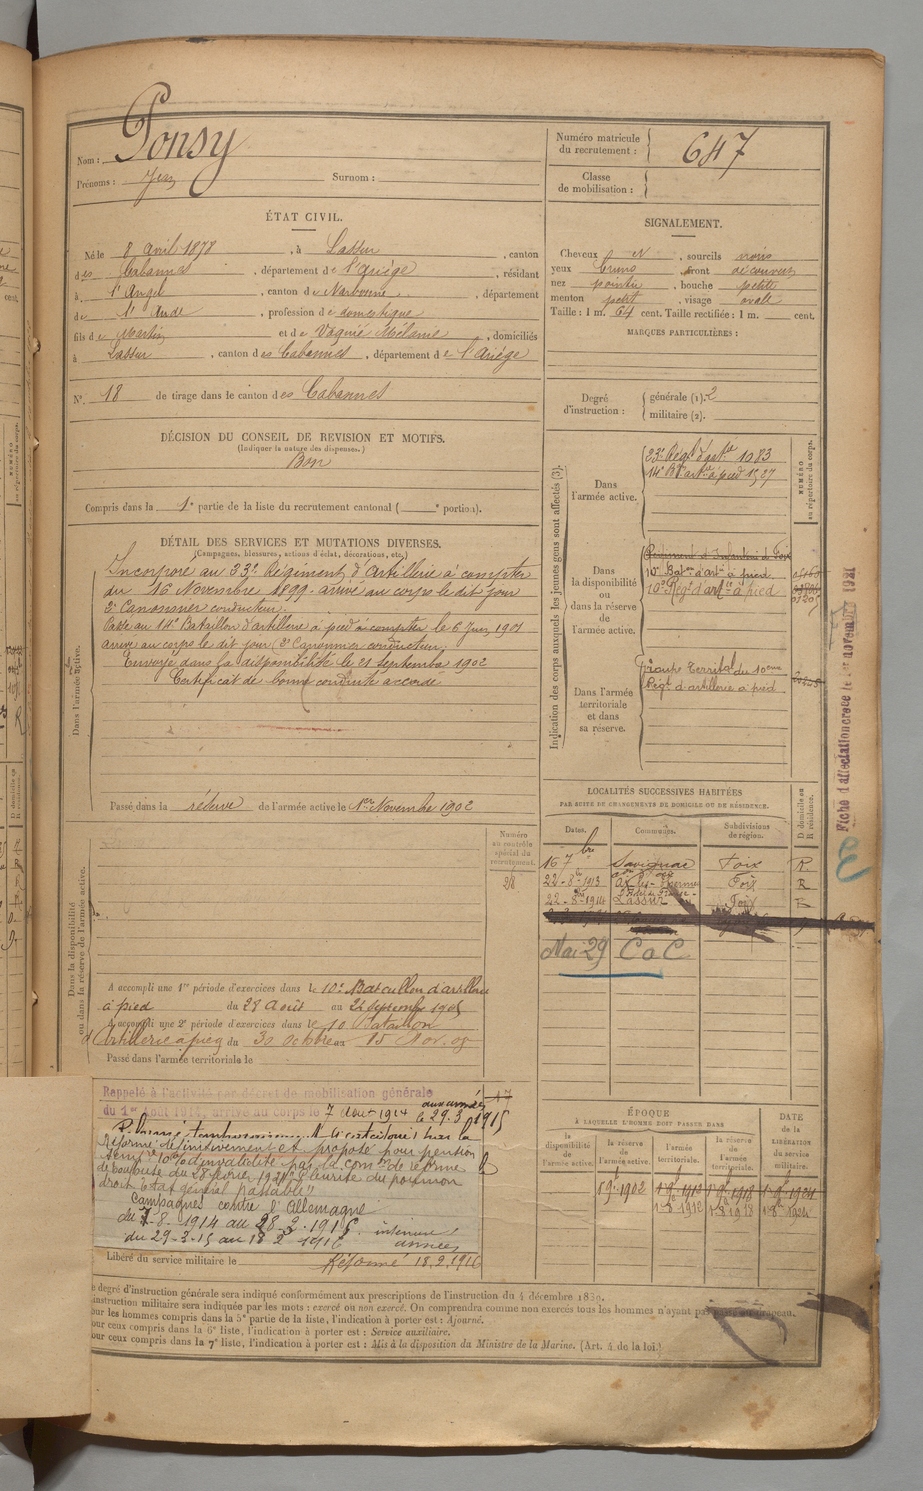 Nom : Ponsy
Prénoms : Jean Surnom :
Numéro matricule du recrutement : 647
Classe de mobilisation :
ÉTAT CIVIL.
Né le 8 Avril 1878, à Lassur, canton
des Cabannes, département de l'Ariège, résidant
à l'Angel, canton de Narbonne, département
de l'Aude, profession de domestique
fils de Martin et de Vaquié Mélanie, domiciliés
à Lassur, canton des Cabannes, département de l'Ariège
N° 18 de tirage dans le canton des Cabannes
SIGNALEMENT.
Cheveux et sourcils noirs
yeux bruns, front découvert
nez pointu, bouche petite
menton petit, visage ovale
Taille : 1 m. 64 cent. Taille rectifiée : 1 m. cent.
MARQUES PARTICULIÈRES :
Degré d'instruction : générale (1). 2
militaire (2).
DÉCISION DU CONSEIL DE REVISION ET MOTIFS.
(Indiquer la nature des dispenses.)
Bon
Compris dans la 1e partie de la liste du recrutement cantonal ( e portion).
DÉTAIL DES SERVICES ET MUTATIONS DIVERSES.
(Campagnes, blessures, actions d'éclat, décorations, etc.)
Dans l'armée active.
Incorporé au 23e Régiment d'Artillerie à compter
du 16 Novembre 1899. arrivé au corps le dit jour
2e Canonnier conducteur.
Passé au 14e Bataillon d'artillerie à pied à compter le 6 Juin 1901
arrivé au corps le dit jour 2e Canonnier conducteur.
Envoyé dans la disponibilité le 21 septembre 1902
Certificat de bonne conduite accordé
Passé dans la réserve de l'armée active le 1er Novembre 1902
Indication des corps auxquels les jeunes gens sont affectés (3).
NUMÉRO au répertoire du corps.
Dans l'armée active.
23e Régt d'artie 1083
14e Bon artie à pied 1527
Dans la disponibilité ou dans la réserve de l'armée active.
Régiment d'Infanterie de Foix
10e Baton d'artie à pied
10e Regt d'artie à pied
Dans l'armée territoriale et dans sa réserve.
Groupe Territal du 10eme
Régt d'artillerie à pied
Fiche d'affectation créée le 1er novembre 1921
LOCALITÉS SUCCESSIVES HABITÉES
PAR SUITE DE CHANGEMENTS DE DOMICILE OU DE RÉSIDENCE.
Dates. Communes. Subdivisions de région. D domicile ou R résidence.
Savignac Foix R.
22-8-1913 Ax-les-Thermes Foix R
22-8-1914 Lassur Foix R
Mai 29 C o C
Numéro au contrôle spécial du recrutement.
28
Dans la disponibilité ou dans la réserve de l'armée active.
A accompli une 1re période d'exercices dans le 10e Bataillon d'artillerie
à pied du 28 Août au 24 septembre 1905
A accompli une 2e période d'exercices dans le 10 Bataillon
d'Artillerie à pied du 30 octobre au 15 Nov. 08
Passé dans l'armée territoriale le
Rappelé à l'activité par décret de mobilisation générale
du 1er Août 1914, arrivé au corps le 7 Aout 1914 aux armées le 29.3.1915
Réformé définitivement et proposé pour pension
10% d'invalidité par la comon de réforme
de Toulouse du 28 février 1921 Pleurite du poumon
droit "Etat général passable"
Campagnes contre l'Allemagne
du 7-8-1914 au 28-3-1915 intérieur
du 29-3-15 au 18 2 1916 armées
Libéré du service militaire le Réformé 18.2.1916
ÉPOQUE
À LAQUELLE L'HOMME DOIT PASSER DANS
la disponibilité de l'armée active. la réserve de l'armée active. l'armée territoriale. la réserve de l'armée territoriale.
DATE de la LIBÉRATION du service militaire.
1 9e 1902
le degré d'instruction générale sera indiqué conformément aux prescriptions de l'instruction du 4 décembre 1889.
L'instruction militaire sera indiquée par les mots : exercé ou non exercé. On comprendra comme non exercés tous les hommes n'ayant pas passé au drapeau.
Pour les hommes compris dans la 5e partie de la liste, l'indication à porter est : Ajourné.
Pour ceux compris dans la 6e liste, l'indication à porter est : Service auxiliaire.
Pour ceux compris dans la 7e liste, l'indication à porter est : Mis à la disposition du Ministre de la Marine. (Art. 4 de la loi.)